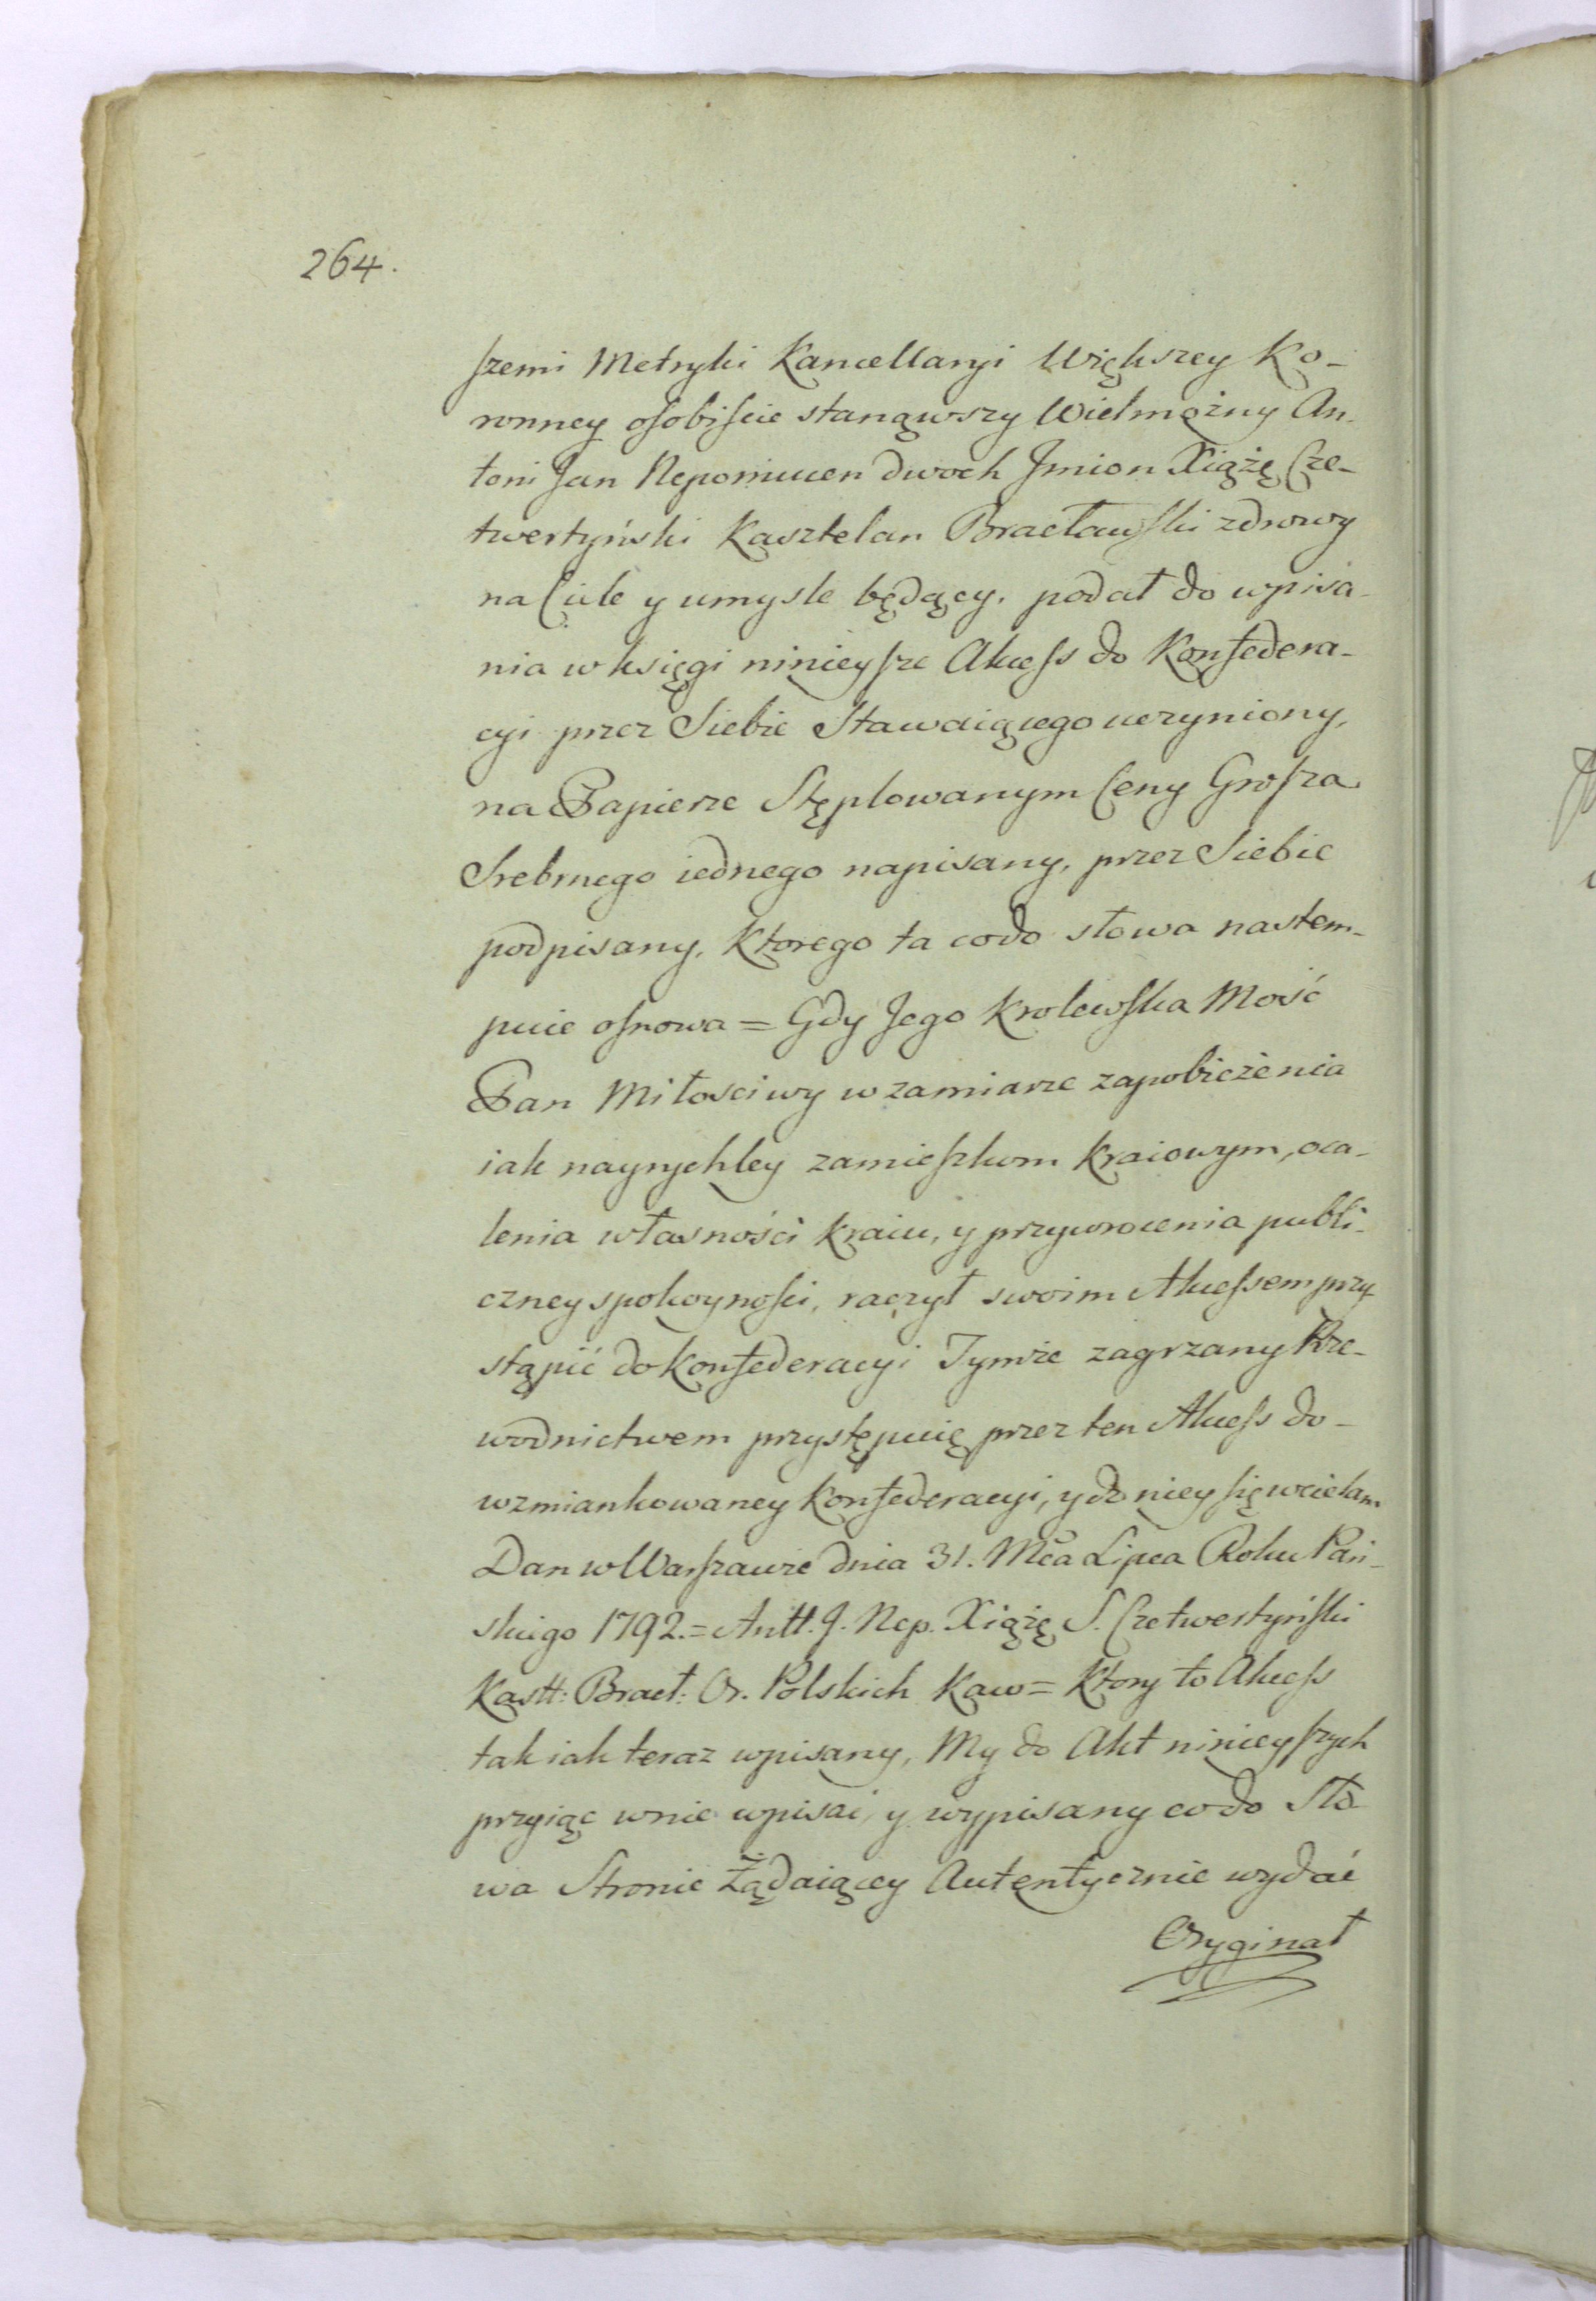 264.
szemi Metryki Kancellaryi Większey Ko-
ronney osobiscie stanąwszy Wielmożny An-
toni Jan Nepomucen dwoch Jmion Xiążę Cze-
twertyński Kasztelan Bracławski zdrowy
na Ciele y umysle będący, podał do wpisa-
nia w księgi ninieysze Akcess do Konfedera-
cyi przez Siebie Stawaiącego uczyniony,
na Papierze Stęplowanym Ceny Grosza
Srebrnego iednego napisany, przez Siebie
podpisany, Ktorego ta codo słowa nastem-
puie osnowa = Gdy Jego Krolewska Mość
Pan Miłosciwy w zamiarze zapobieżenia
iak nayrychley zamieszkom Kraiowym, oca-
lenia własności Kraiu, y przywrocenia publi-
czney spokoyności, raczył swoim Akcessem przy-
stąpić do Konfederacyi Tymże zagrzany Prze-
wodnictwem przystępuię przez ten Akcess do-
wzmiankowaney Konfederacyi, y do niey się wcielam
Dan w Warszawie dnia 31. Mca Lipca Roku Pań-
skiego 1792. = Antt. J. Nep. Xiążę S. Czetwertyński
Kastt: Bracł: Or. Polskich Kaw = Ktory to Akcess
tak iak teraz wpisany, My do Akt ninieyszych
przyiąc w nie wpisac, y wypisany co do Sło
wa Stronie Żądaiącey Autentycznie wydać
Oryginał